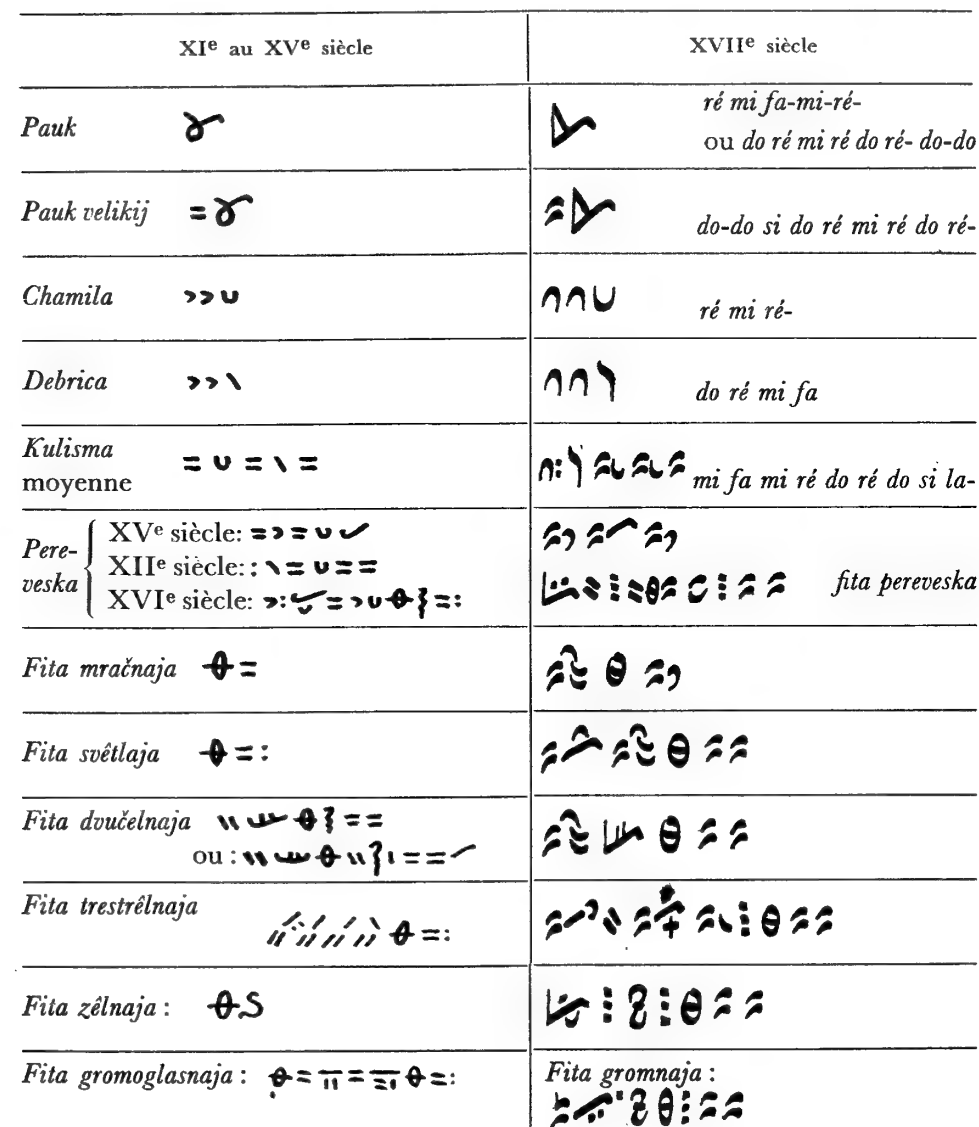 XIe au XVe siècle
XVIIe siècle
Pauk
ré mi fa-mi-ré-
ou do ré mi ré do ré- do-do
Pauk velikij
do-do si do ré mi ré do ré-
Chamila
ré mi ré-
Debrica
do ré mi fa
Kulisma
moyenne
mi fa mi ré do ré do si la-
Pere-
veska
XVe siècle:
XIIe siècle:
XVIe siècle:
fita pereveska
Fita mračnaja
Fita svêtlaja
Fita dvučelnaja
ou :
Fita trestrêlnaja
Fita zêlnaja :
Fita gromoglasnaja :
Fita gromnaja :